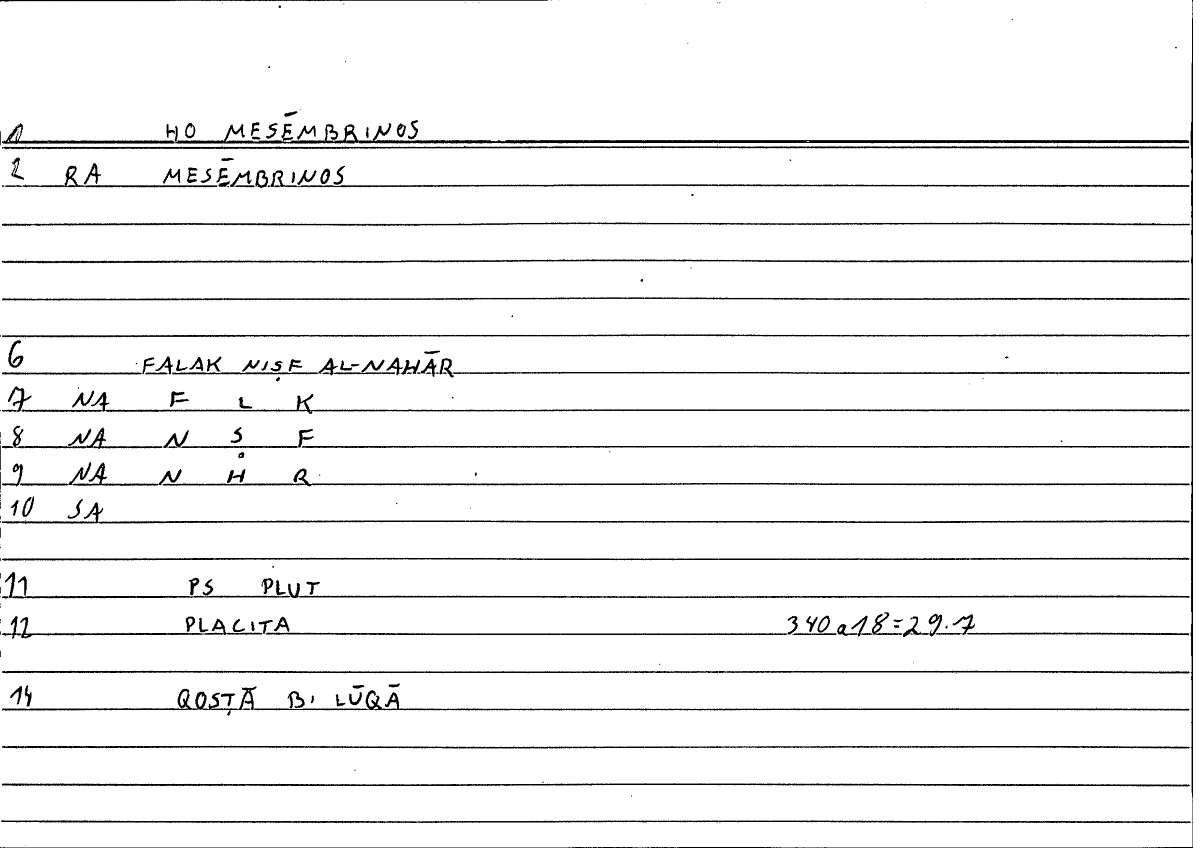 1 HO MESĒMBRINOS
2 RA MESĒMBRINOS
6 FALAK NIṢF AL-NAHĀR
7 NA F L K
8 NA N Ṣ F
9 NA N H R
10 SA
11 PS PLUT
12 PLACITA 340a18=29.7
14 QOSṬĀ B. LŪQĀ